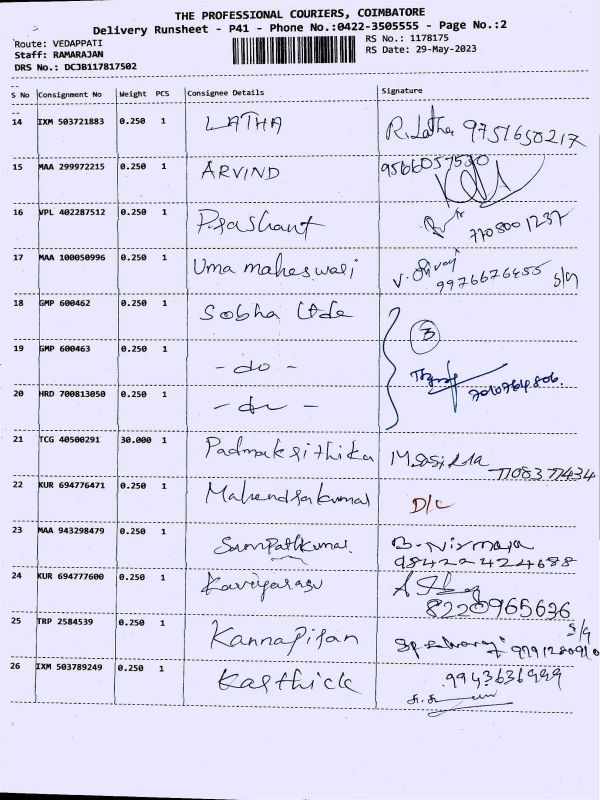 THE PROFESSIONAL COURIERS, COIMBATORE
Delivery Runsheet - P41 - Phone No.:0422-3505555 - Page No.:2
Route: VEDAPPATI
RS No.: 1178175
Staff: RAMARAJAN
RS Date: 29-May-2023
DRS No.: DCJB117817502
S No Consignment No Weight PCS Consignee Details Signature
14 IXM 503721883 0.250 1 LATHA R. Latha 9751650217
15 MAA 299972215 0.250 1 ARVIND 9566057530
16 VPL 402287512 0.250 1 Prashant 7708001237
17 MAA 100050996 0.250 1 Uma maheswari V. Shivaji 9976676455 S/g
18 GMP 600462 0.250 1 Sobha Ltde
19 GMP 600463 0.250 1 - do - 3
20 HRD 700813050 0.250 1 - do - 7010764806.
21 TCG 40500291 30.000 1 Padmakrithika M. Sasikla 7708377434
22 KUR 694776471 0.250 1 Mahendrakumar D/L
23 MAA 943298479 0.250 1 Sampathkumar B-Nirmala
9842424688
24 KUR 694777600 0.250 1 Kaviyarasu
8220965636
25 TRP 2584539 0.250 1 Kannapiran S/g
26 IXM 503789249 0.250 1 Karthick 9943636999